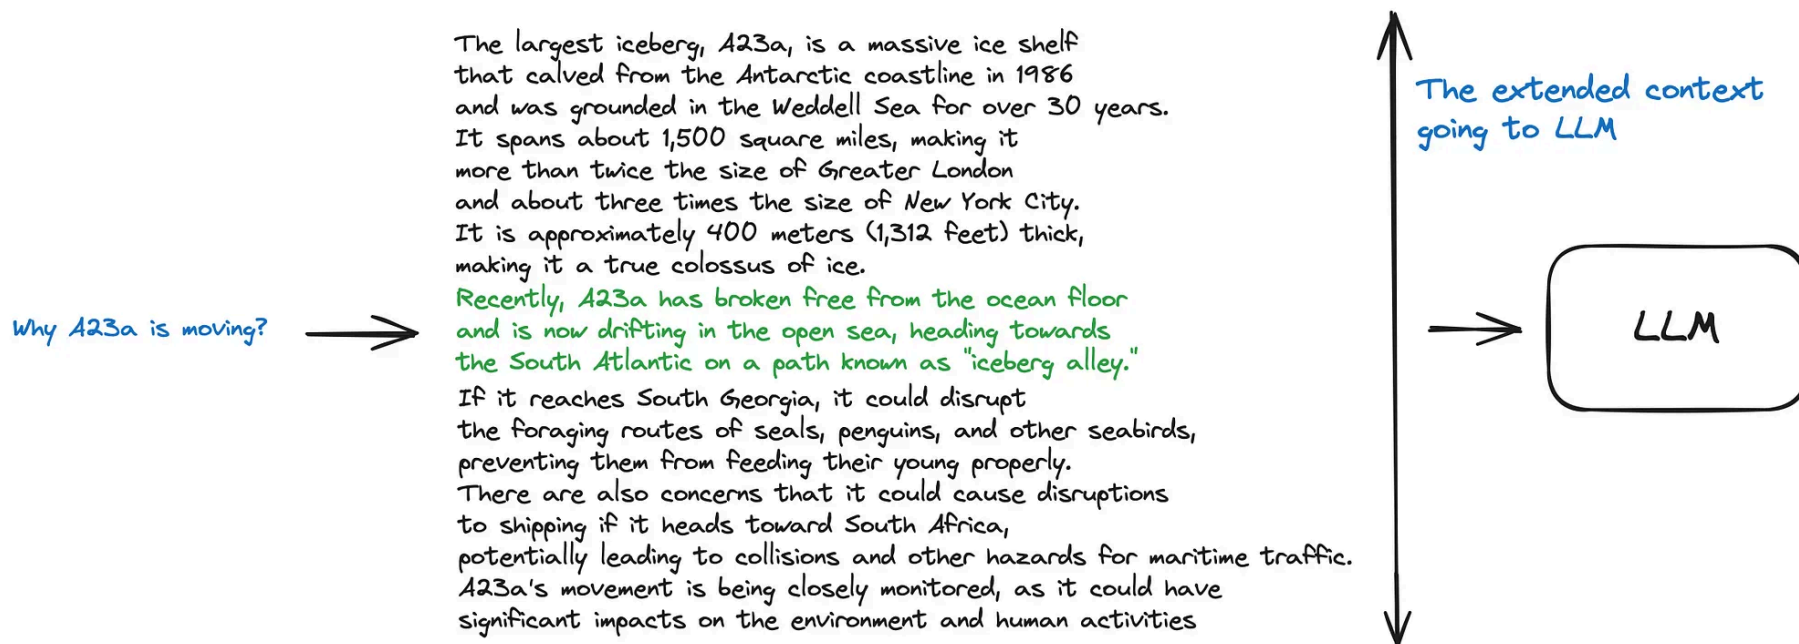 Why A23a is moving?
The largest iceberg, A23a, is a massive ice shelf
that calved from the Antarctic coastline in 1986
and was grounded in the Weddell Sea for over 30 years.
It spans about 1,500 square miles, making it
more than twice the size of Greater London
and about three times the size of New York City.
It is approximately 400 meters (1,312 feet) thick,
making it a true colossus of ice.
Recently, A23a has broken free from the ocean floor
and is now drifting in the open sea, heading towards
the South Atlantic on a path known as "iceberg alley."
If it reaches South Georgia, it could disrupt
the foraging routes of seals, penguins, and other seabirds,
preventing them from feeding their young properly.
There are also concerns that it could cause disruptions
to shipping if it heads toward South Africa,
potentially leading to collisions and other hazards for maritime traffic.
A23a's movement is being closely monitored, as it could have
significant impacts on the environment and human activities
The extended context
going to LLM
LLM